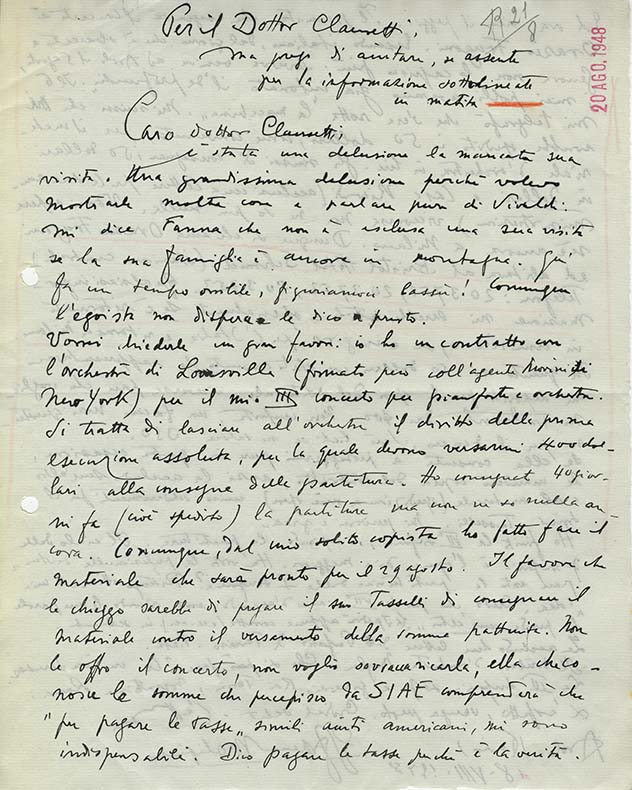 Per il Dottor Clausetti,
R 21/8
ma prego di aiutare, se assente
per la informazione sottolineate
in matita
20 AGO. 1948
Caro Dottor Clausetti,
è stata una delusione la mancata sua
visita. Una grandissima delusione perchè volevo
mostrarle molte cose e parlare pure di Vivaldi.
Mi dice Fanna che non è esclusa una sua visita
se la sua famiglia è ancora in montagna. Qui
fa un tempo orribile, figuriamoci lassù! Comunque
l'egoista non dispera e le dico a presto.
Vorrei chiederle un gran favore: io ho un contratto con
l'orchestra di Louisville (firmato però coll'agente di
New York) per il mio III concerto per pianoforte e orchestra.
Si tratta di lasciare all'orchestra il diritto della prima
esecuzione assoluta, per la quale devono versarmi 400 dol-
lari alla consegna della partitura. Ho consegnat 40 gior-
ni fa (cioè spedito) la partitura ma non ne so nulla an-
cora. Comunque, dal mio solito copista ho fatto fare il
materiale che sarà pronto per il 29 agosto. Il favore che
le chieggo sarebbe di pregare il suo Tasselli di consegnare il
materiale contro il versamento della somma pattuita. Non
le offro il concerto, non voglio sovraccaricarla, ella che co-
nosce le somme che percepisco da SIAE comprenderà che
"per pagare le tasse" simili aiuti americani, mi sono
indispensabili. Dico pagare le tasse perchè è la verità.